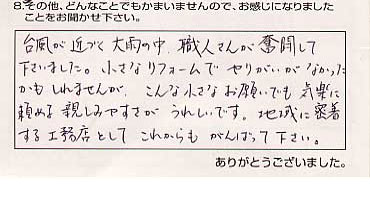 8.その他、どんなことでもかまいませんので、お感じになりました
ことをお聞かせ下さい。
台風が近づく大雨の中、職人さんが奮闘して
下さいました。小さなリフォームでやりがいがなかった
かもしれませんが、こんな小さなお願いでも気楽に
頼める親しみやすさがうれしいです。地域に密着
する工務店としてこれからもがんばって下さい。
ありがとうございました。